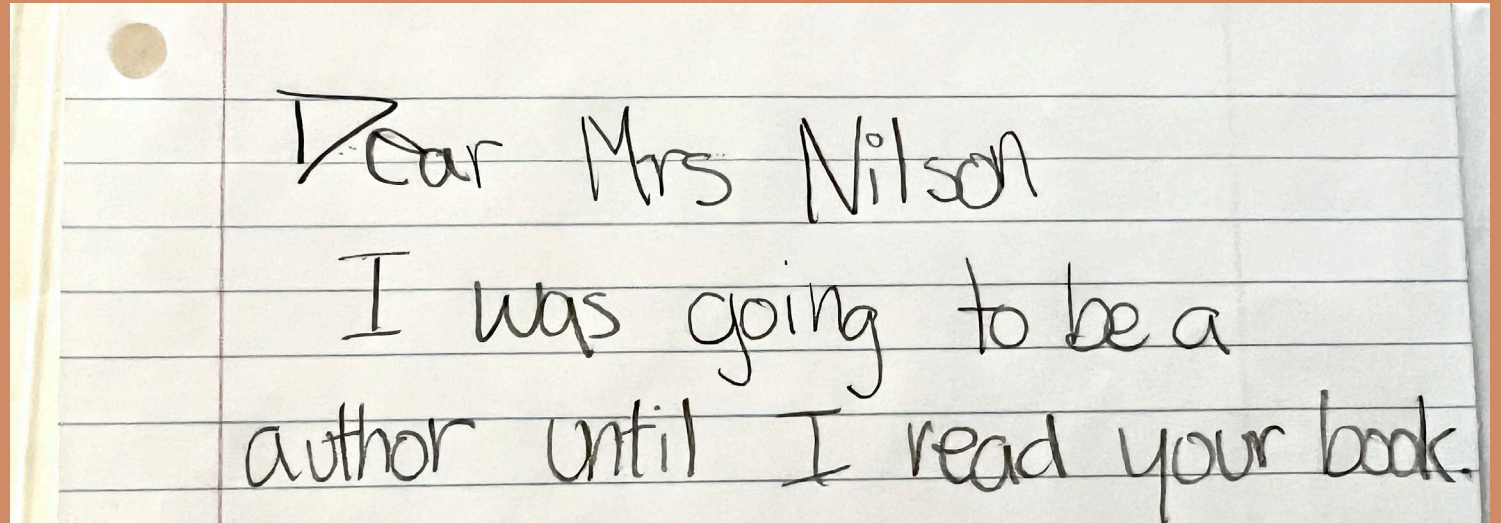 Dear Mrs Nilson
I was going to be a
author until I read your book.